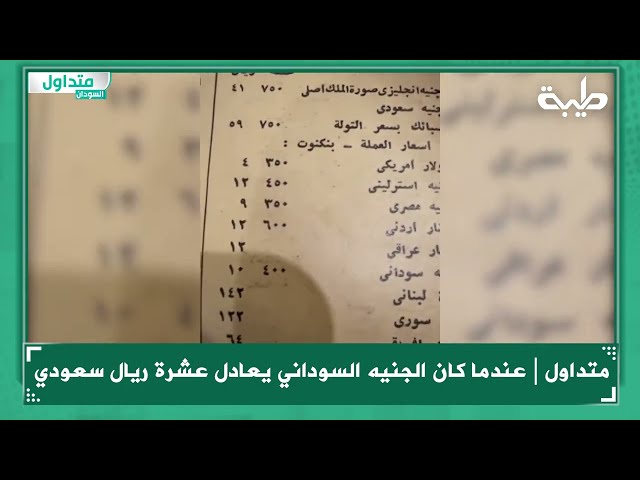 متداول
السودان
طيبة
جنيه انجليزى صورة الملك اصلى ٧٥٠ ٤١
جنيه سعودى
سبائك بسعر التولة ٧٥٠ ٥٩
اسعار العملة – بنكنوت :
ولار امريكى ٣٥٠ ٤
يه استرلينى ٤٥٠ ١٢
يه مصرى ٣٥٠ ٩
نار اردنى ٦٠٠ ١٢
ار عراقى ١٢
ه سودانى ٤٠٠ ١٠
لبنانى ١٤٢
سورى ١٢٢
٦٤
متداول | عندما كان الجنيه السوداني يعادل عشرة ريال سعودي